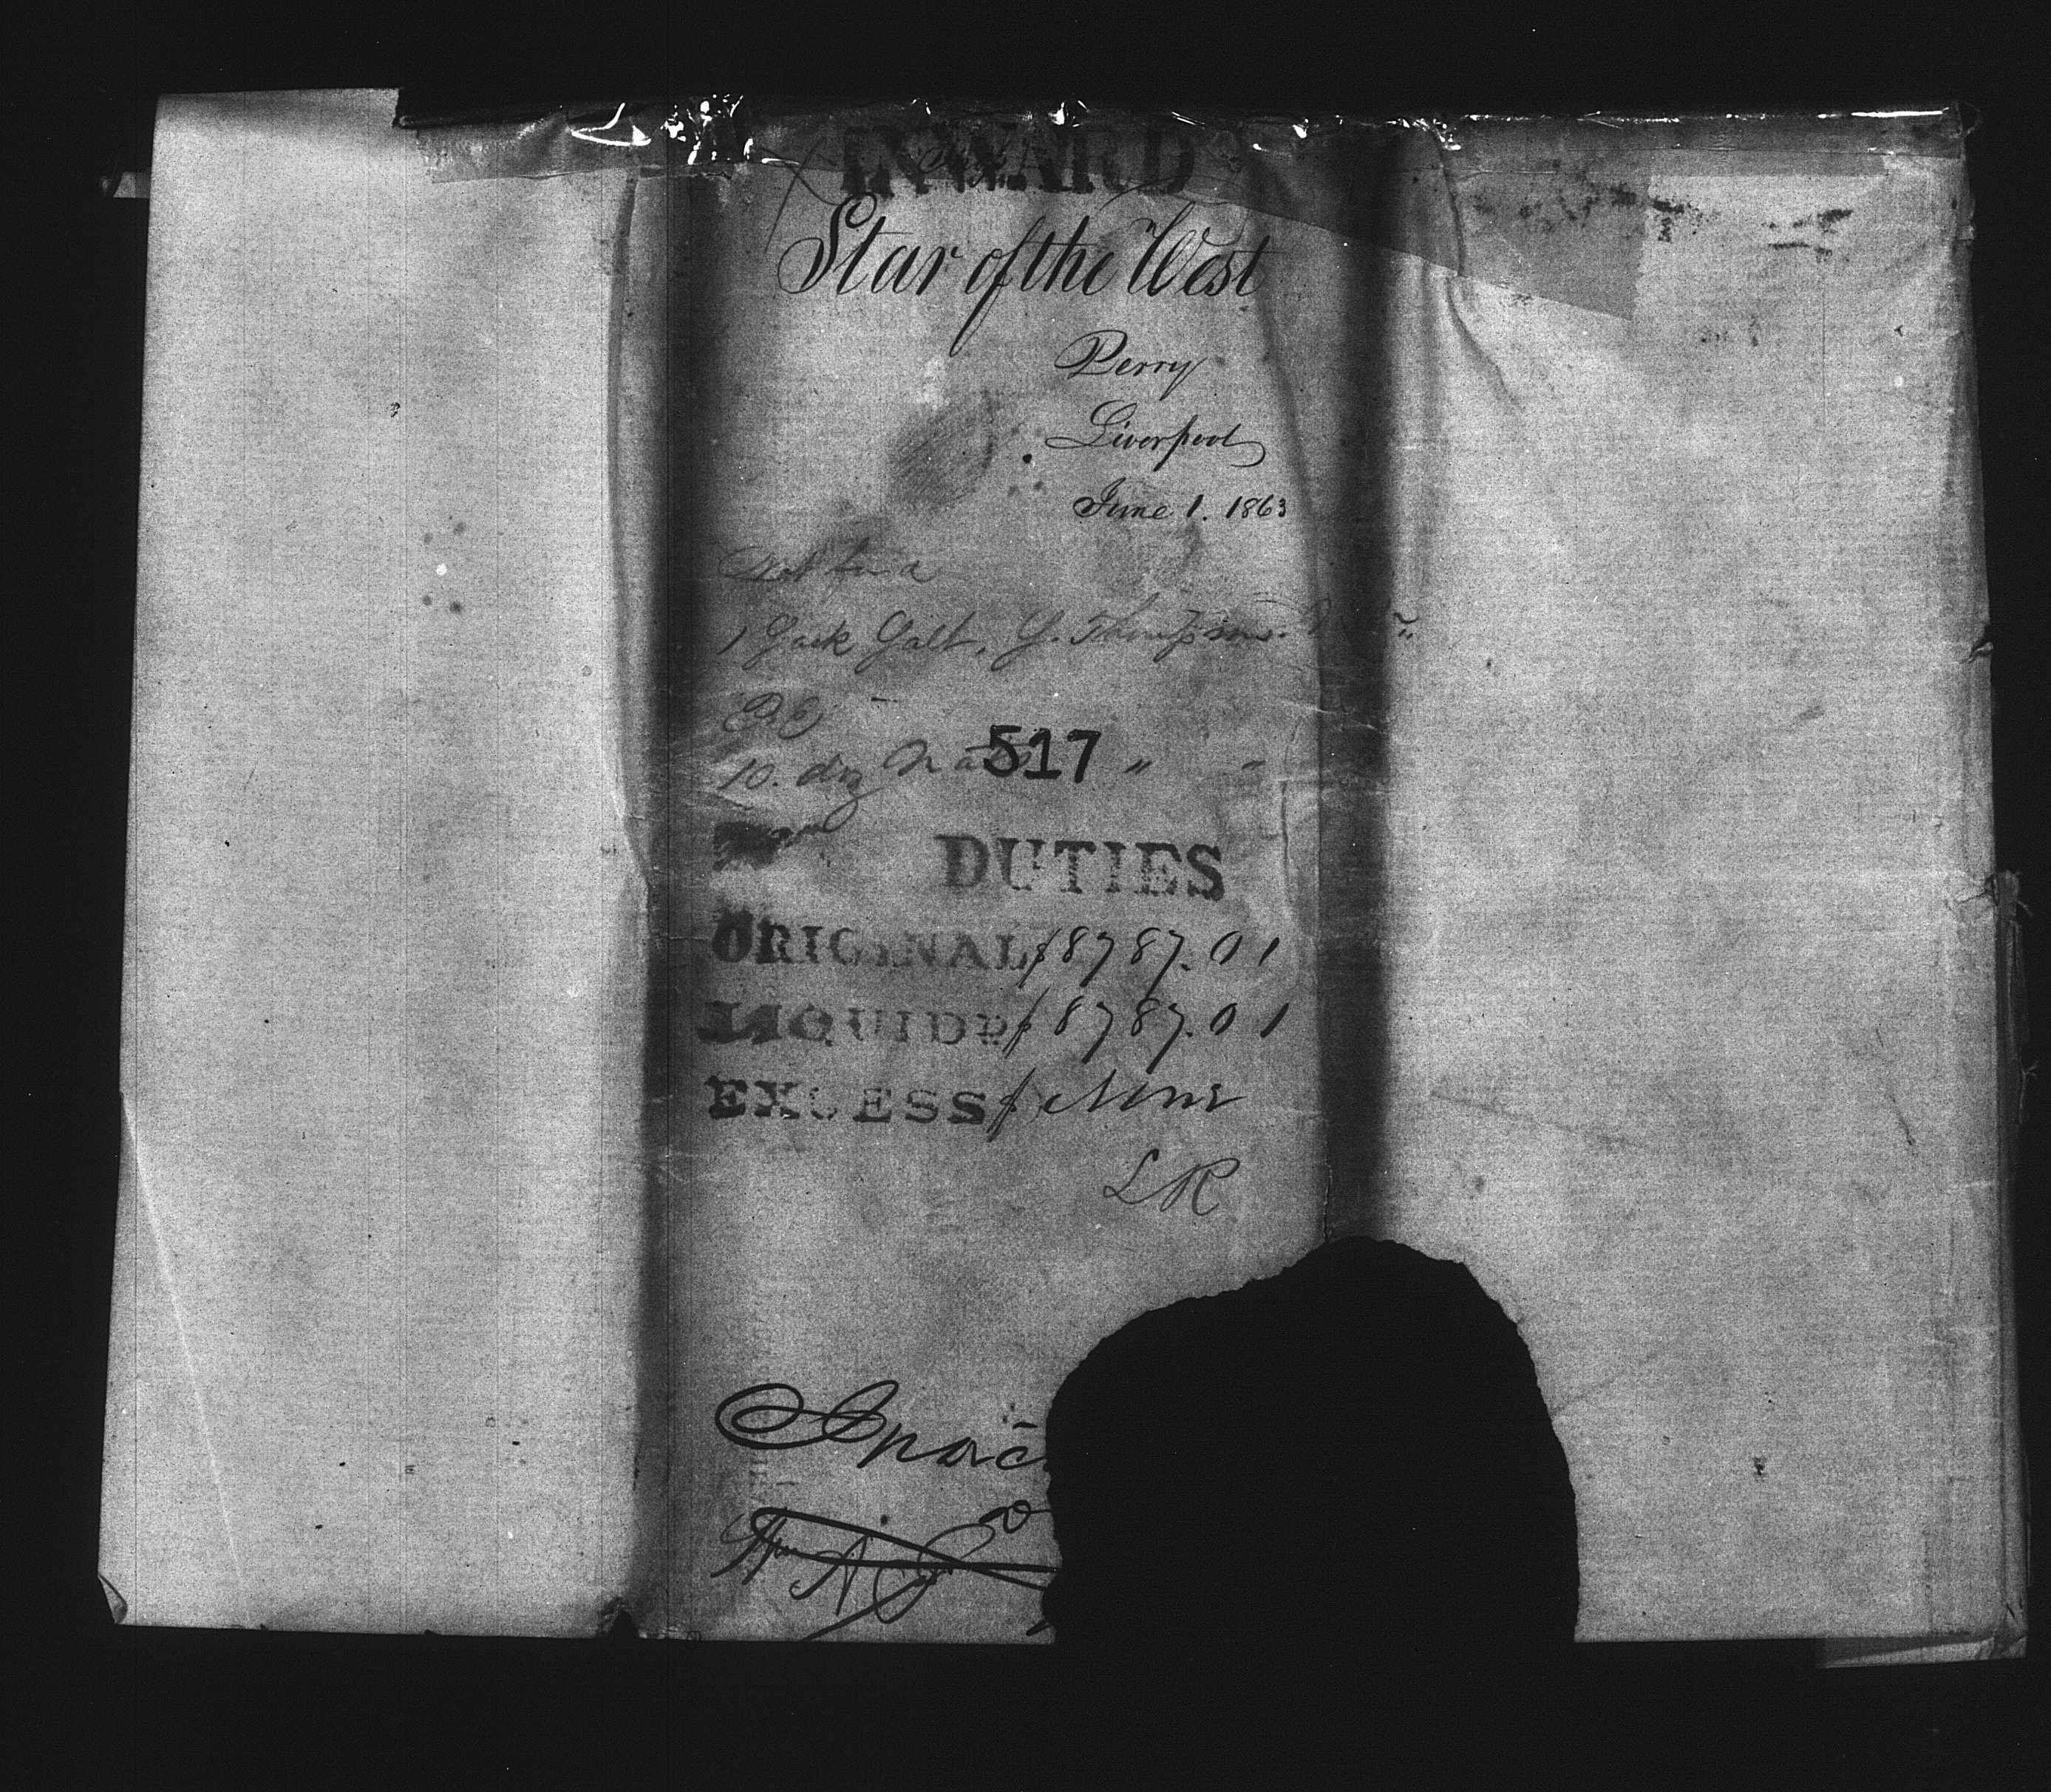 INWARD
Star of the West
Perry
Liverpool
June 1. 1863
Not found
1 Sack Salt, Y. Thompson
O.E
10. doz 517 " "
DUTIES
ORIGINAL $8787.01
LIQUID'D $8787.01
EXCESS $ None
LR